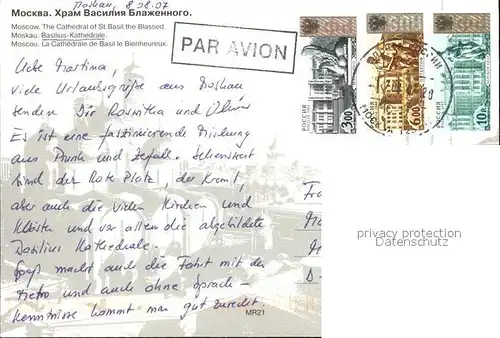 Moskau, 8.08.07
Москва. Храм Василия Блаженного.
Moscow. The Cathedral of St. Basil the Blassed.
Moskau. Basilius-Kathedrale.
Moscou. La Cathédrale de Basil le Bienheureux.
PAR AVION
РОССИЯ 3.00
РОССИЯ 6.00
РОССИЯ 10
Liebe Martina!
viele Urlaubsgrüße aus Moskau
senden Dir Roswitha und
Es ist eine faszinierende Mischung
aus Prunk und Zerfall. Sehenswert
sind der Rote Platz, der Kreml,
aber auch die vielen Kirchen und
Klöster und vor allem die abgebildete
Basilius Kathedrale.
Spaß macht auch die Fahrt mit der
Metro und auch ohne Sprach-
kenntnisse kommt man gut zurecht.
MR21
privacy protection
Datenschutz